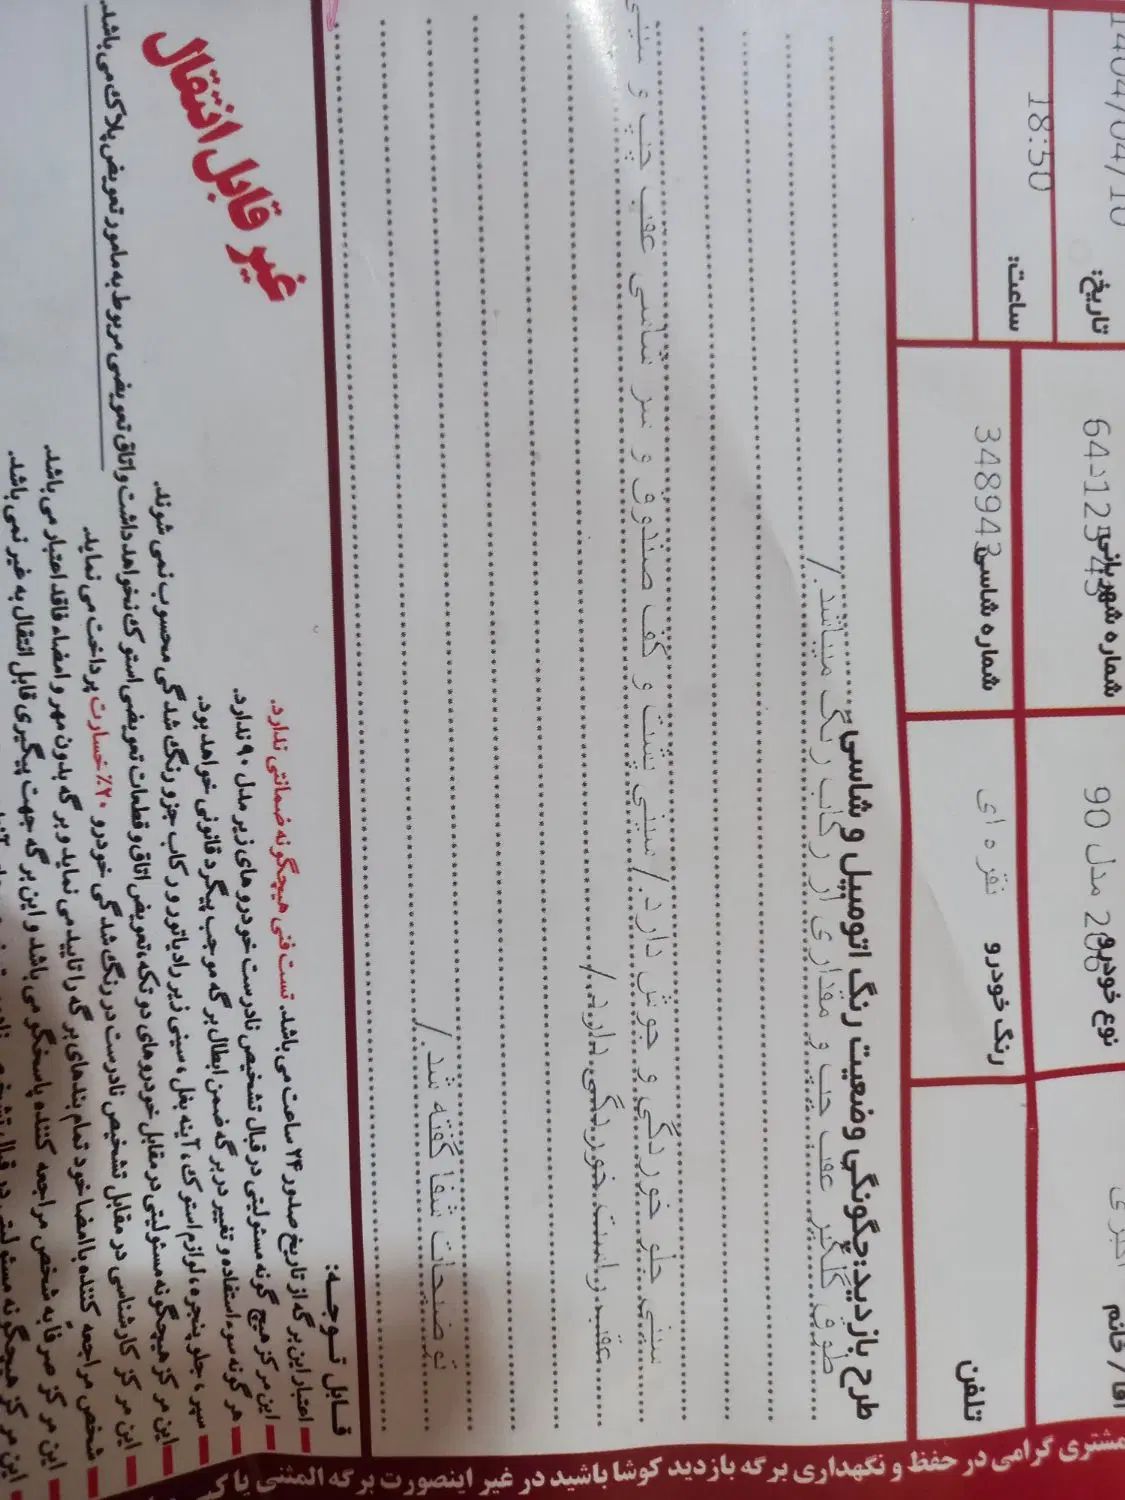 تاریخ: 1404/04/10
ساعت: 18:50
آقا / خانم
نوع خودرو 206 مدل 90
شماره شهربانی
تلفن
رنگ خودرو نقره ای
شماره شاسی 348943
طرح بازدید: چگونگی وضعیت رنگ اتومبیل و شاسی
طوق گلگیر عقب چپ و مقداری از رکاب رنگ میباشد./
سینی جلو خوردگی و جوش دارد./ سینی پشت و کف صندوق و سر شاسی عقب چپ و سینی
عقب راست خوردگی دارد./
توضیحات شفا گفته شد./
قابل توجه:
اعتبار این برگه از تاریخ صدور ۲۴ ساعت می باشد. تست فنی هیچگونه ضمانتی ندارد.
این مرکز هیچ گونه مسئولیتی در قبال تشخیص نادرست خودروهای زیر مدل ۹۰ ندارد.
هرگونه سوء استفاده و تغییر در برگه ضمن ابطال برگه موجب پیگرد قانونی خواهد بود.
سپر، جلو پنجره، لوازم استوک، آینه بغل، سینی زیر رادیاتور و رکاب جزو رنگ شدگی محسوب نمی شوند.
این مرکز هیچگونه مسئولیتی در مقابل خودروهای دو تکه، تعویض اتاق و قطعات تعویضی استوک نخواهد داشت و اتاق تعویضی مربوط به مامور تعویض پلاک می باشد.
این مرکز کارشناسی در مقابل تشخیص نادرست در رنگ شدگی خودرو ۲۰٪ خسارت پرداخت می نماید.
شخص مراجعه کننده با امضا خود تمام بندهای برگه را تایید می نماید و برگه بدون مهر و امضاء فاقد اعتبار می باشد.
این مرکز صرفا به شخص مراجعه کننده پاسخگو می باشد و این برگه جهت پیگیری قابل انتقال به غیر نمی باشد.
این مرکز هیچگونه مسئولیتی در قبال تشخیص
غیر قابل انتقال
مشتری گرامی در حفظ و نگهداری برگه بازدید کوشا باشید در غیر اینصورت برگه المثنی یا